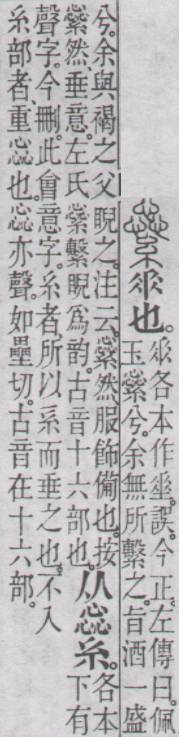 繠 𠂹也。
𠂹各本作𡍮。誤。今正。左傳曰。佩
玉繠兮。余無所繫之。旨酒一盛
兮。余與褐之父睨之。注云。繠然服飾備也。按
繠然、垂意。左氏繠繫睨爲韵。古音十六部也。
从惢糸。
各本
下有
聲字。今刪。此會意字。糸者、所以系而垂之也。不入
糸部者、重惢也。惢亦聲。如壘切。古音在十六部。